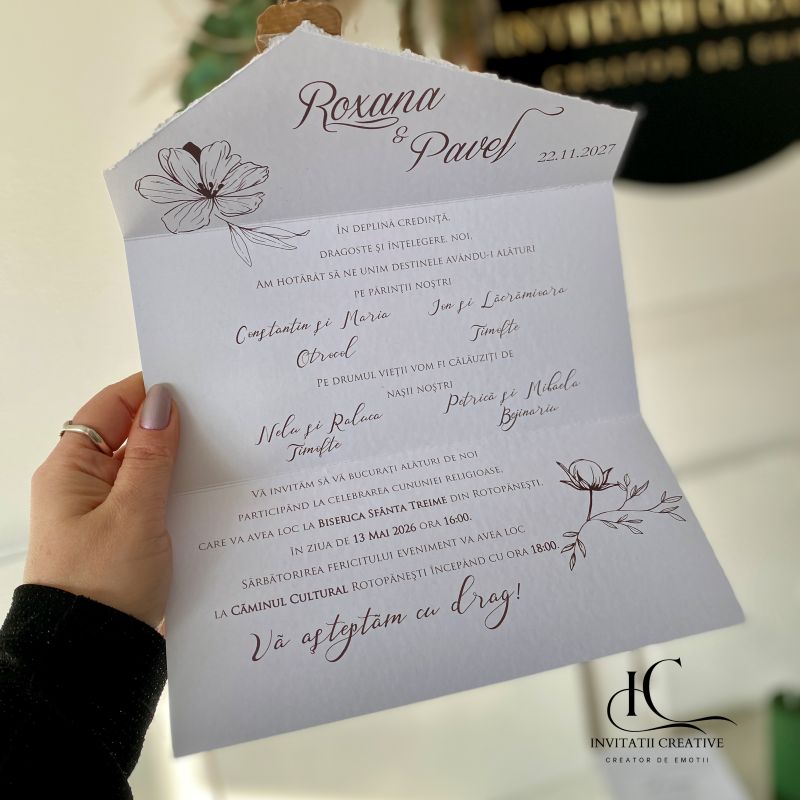 INVITATII CREATIVE
CREATOR DE
Roxana
& Pavel
22.11.2027
În deplină credință,
dragoste și înțelegere, noi,
Am hotărât să ne unim destinele avându-i alături
pe părinții noștri
Constantin și Maria
Otrocol
Ion și Lăcrămioara
Timofte
Pe drumul vieții vom fi călăuziți de
nașii noștri
Nelu și Raluca
Timofte
Petrică și Mihaela
Bejinariu
Vă invităm să vă bucurați alături de noi
participând la celebrarea cununiei religioase,
care va avea loc la Biserica Sfânta Treime din Rotopănești,
în ziua de 13 Mai 2026 ora 16:00.
Sărbătorirea fericitului eveniment va avea loc
la Căminul Cultural Rotopănești începând cu ora 18:00.
Vă aşteptăm cu drag!
IC
INVITATII CREATIVE
CREATOR DE EMOTII